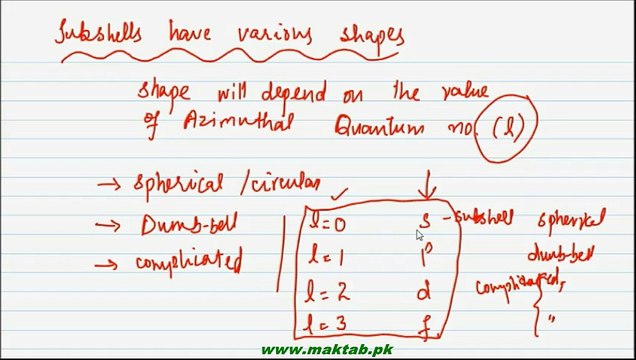 Subshells have various shapes
shape will depend on the value
of Azimuthal Quantum no. (l)
→ spherical / circular
→ Dumb-bell
→ complicated
l=0 s - subshell spherical
l=1 p dumb-bell
l=2 d complicated,
l=3 f "
www.maktab.pk